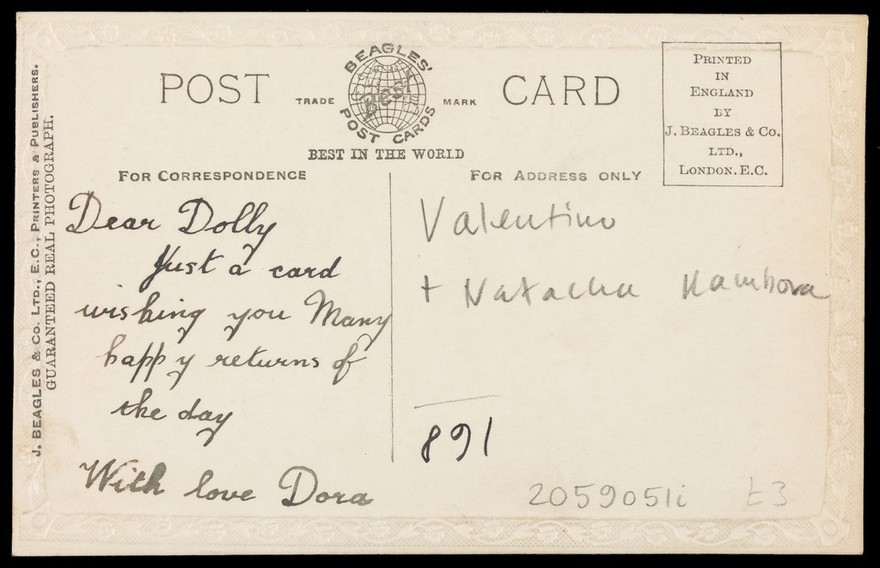 POST CARD
BEAGLES'
TRADE Best MARK
POST CARDS
BEST IN THE WORLD
PRINTED
IN
ENGLAND
BY
J. BEAGLES & Co.
LTD.,
LONDON. E.C.
J. BEAGLES & Co. LTD., E.C., PRINTERS & PUBLISHERS.
GUARANTEED REAL PHOTOGRAPH.
FOR CORRESPONDENCE
Dear Dolly
Just a card
wishing you Many
happy returns of
the day
With love Dora
FOR ADDRESS ONLY
Valentino
+ Natacha Rambova
891
2059051i £3